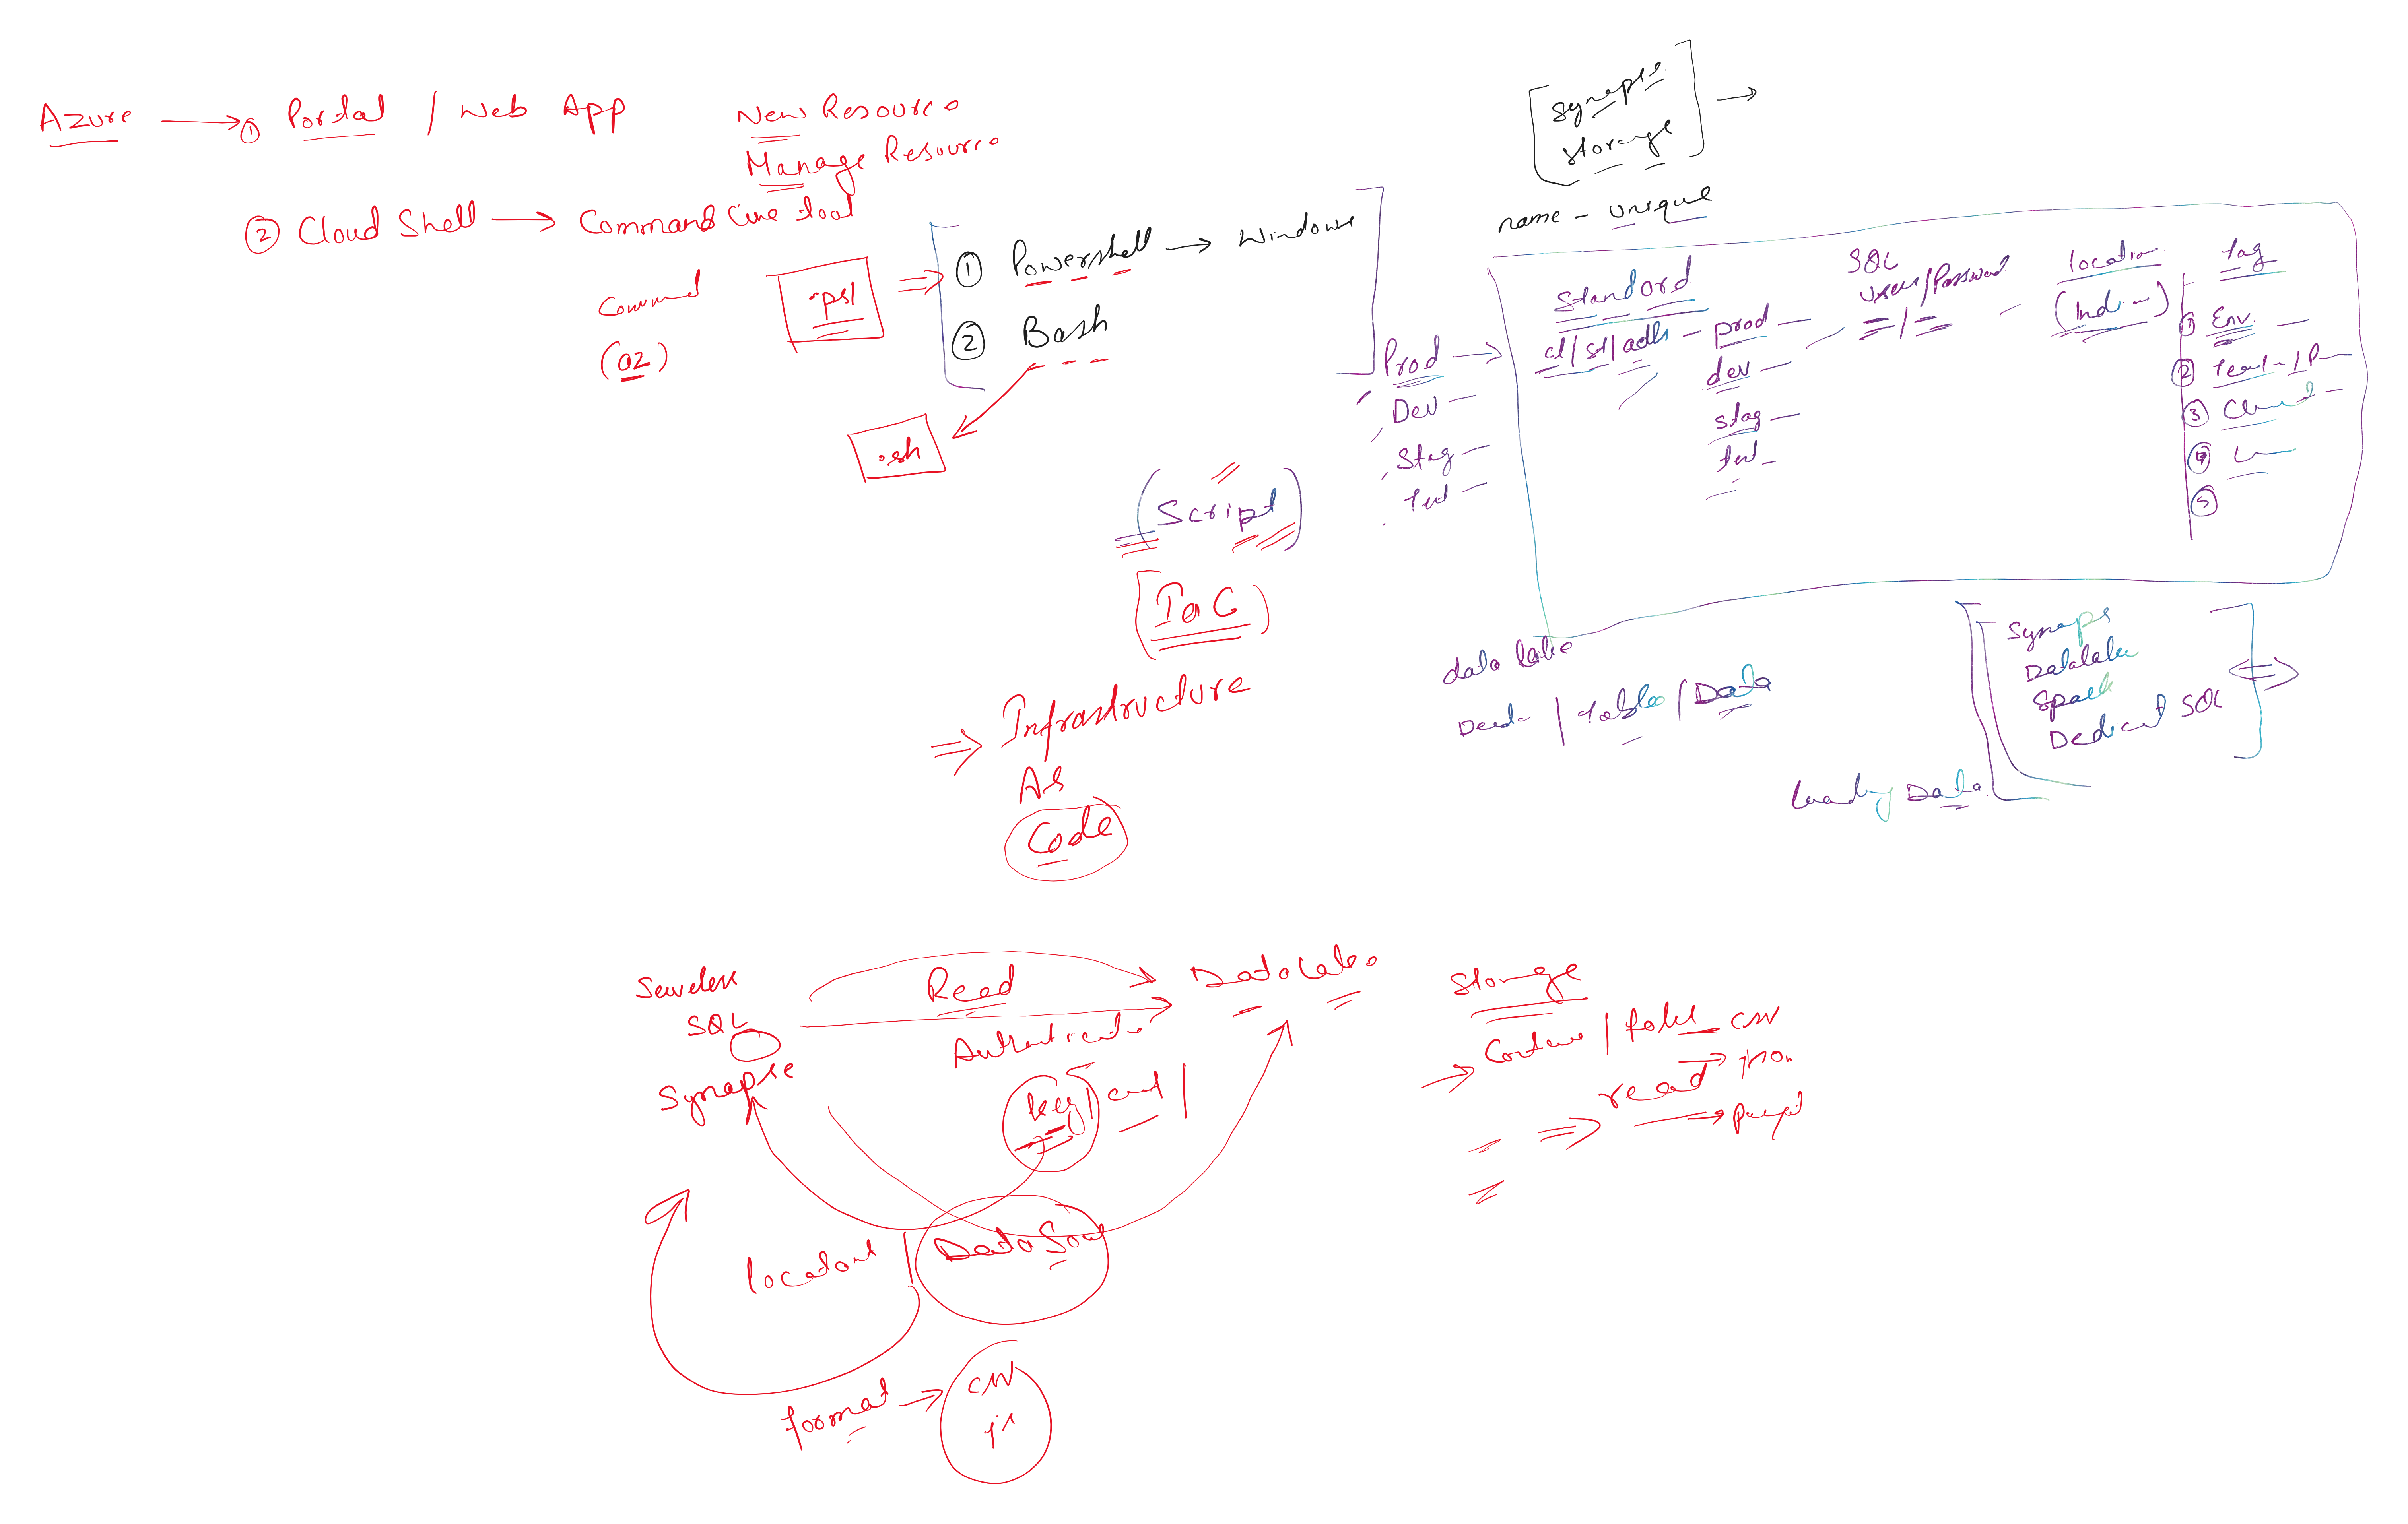 Azure → ① Portal / Web App
New Resource
Manage Resource
② Cloud Shell → Command line tool
Command
(az)
.ps1 ⇒
① Powershell → Windows
② Bash
.sh
(Script)
[IaC]
⇒ Infrastructure
As
Code
[Synapse
storage] →
name - unique
Prod →
Dev -
Stag -
Test -
Standard
- prod -
dev -
stag -
test -
SQL
User/Password
location
(India)
tag
① Env -
②
③
④
⑤
data lake
/ Table / Data
Synaps
Datalake
Spark
Dedicat SQL
loading Data
Serverless
SQL
Synapse
Read
Authenticat
key |
Datalake
Storage
→ Container / folder csv
⇒ read → json
→
location |
Data Sou
format → csv
js